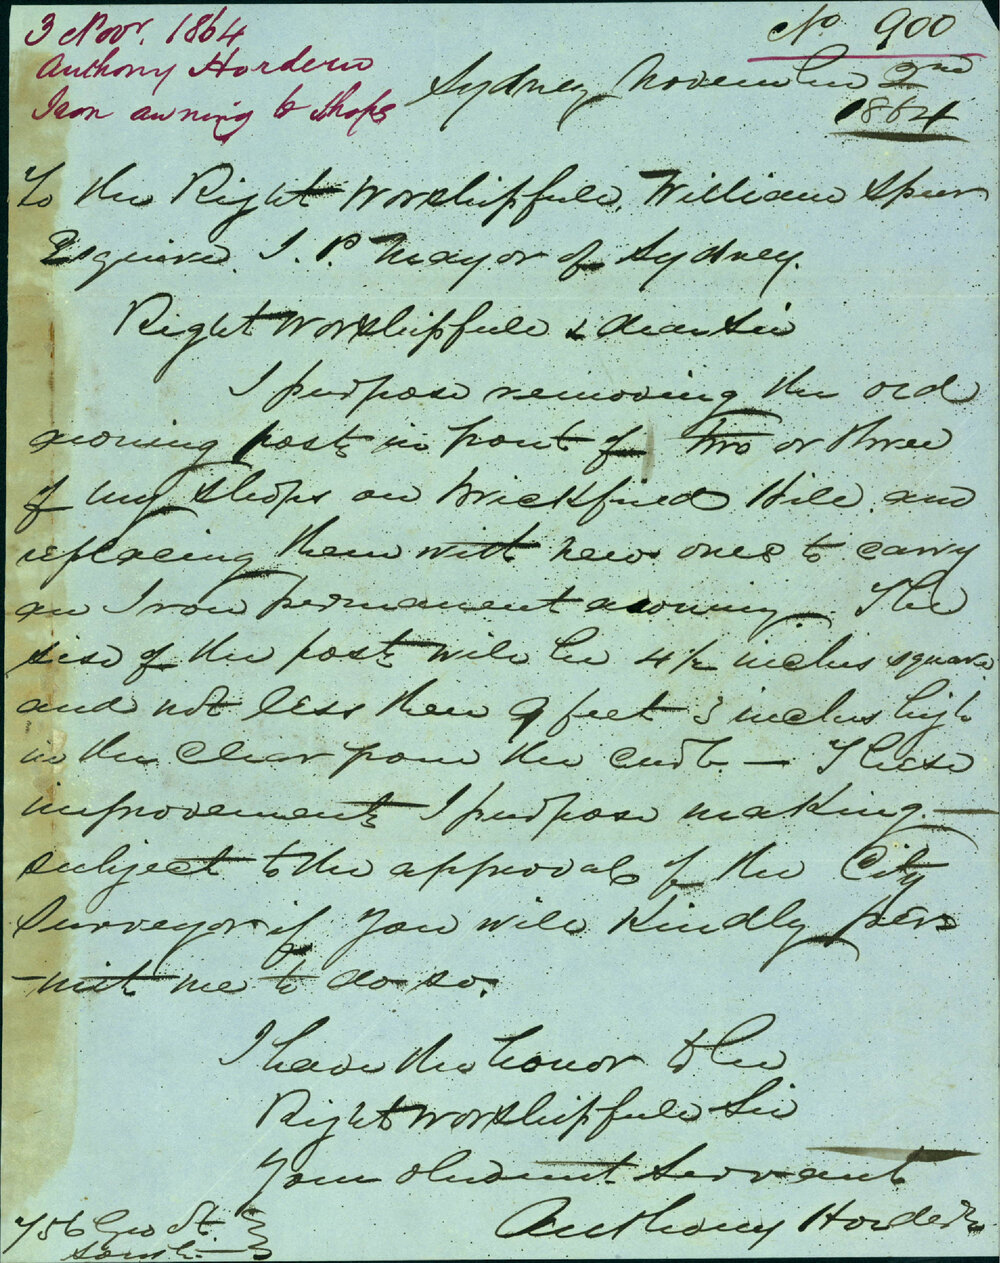 3 Novr. 1864
Anthony Hordern
Iron awning to Shops
No 900
Sydney November 2nd
1864
To the Right Worshipfull William Speer
Esquire J. P. Mayor of Sydney.
Right Worshipfull & dear Sir
I purpose removing the old
awning posts in front of two or three
of my Shops on Brickfield Hill and
replacing them with new ones to carry
an Iron permanent awning. The
size of the posts will be 4½ inches square
and not less then 9 feet 3 inches high
in the clear from the curb. — These
improvements I purpose making —
subject to the approval of the City
Surveyor if you will Kindly per
-mit me to do so.
I have the honor to be
Right Worshipfull Sir
Your obedient Servant
Anthony Hordern
756 Geo St
South